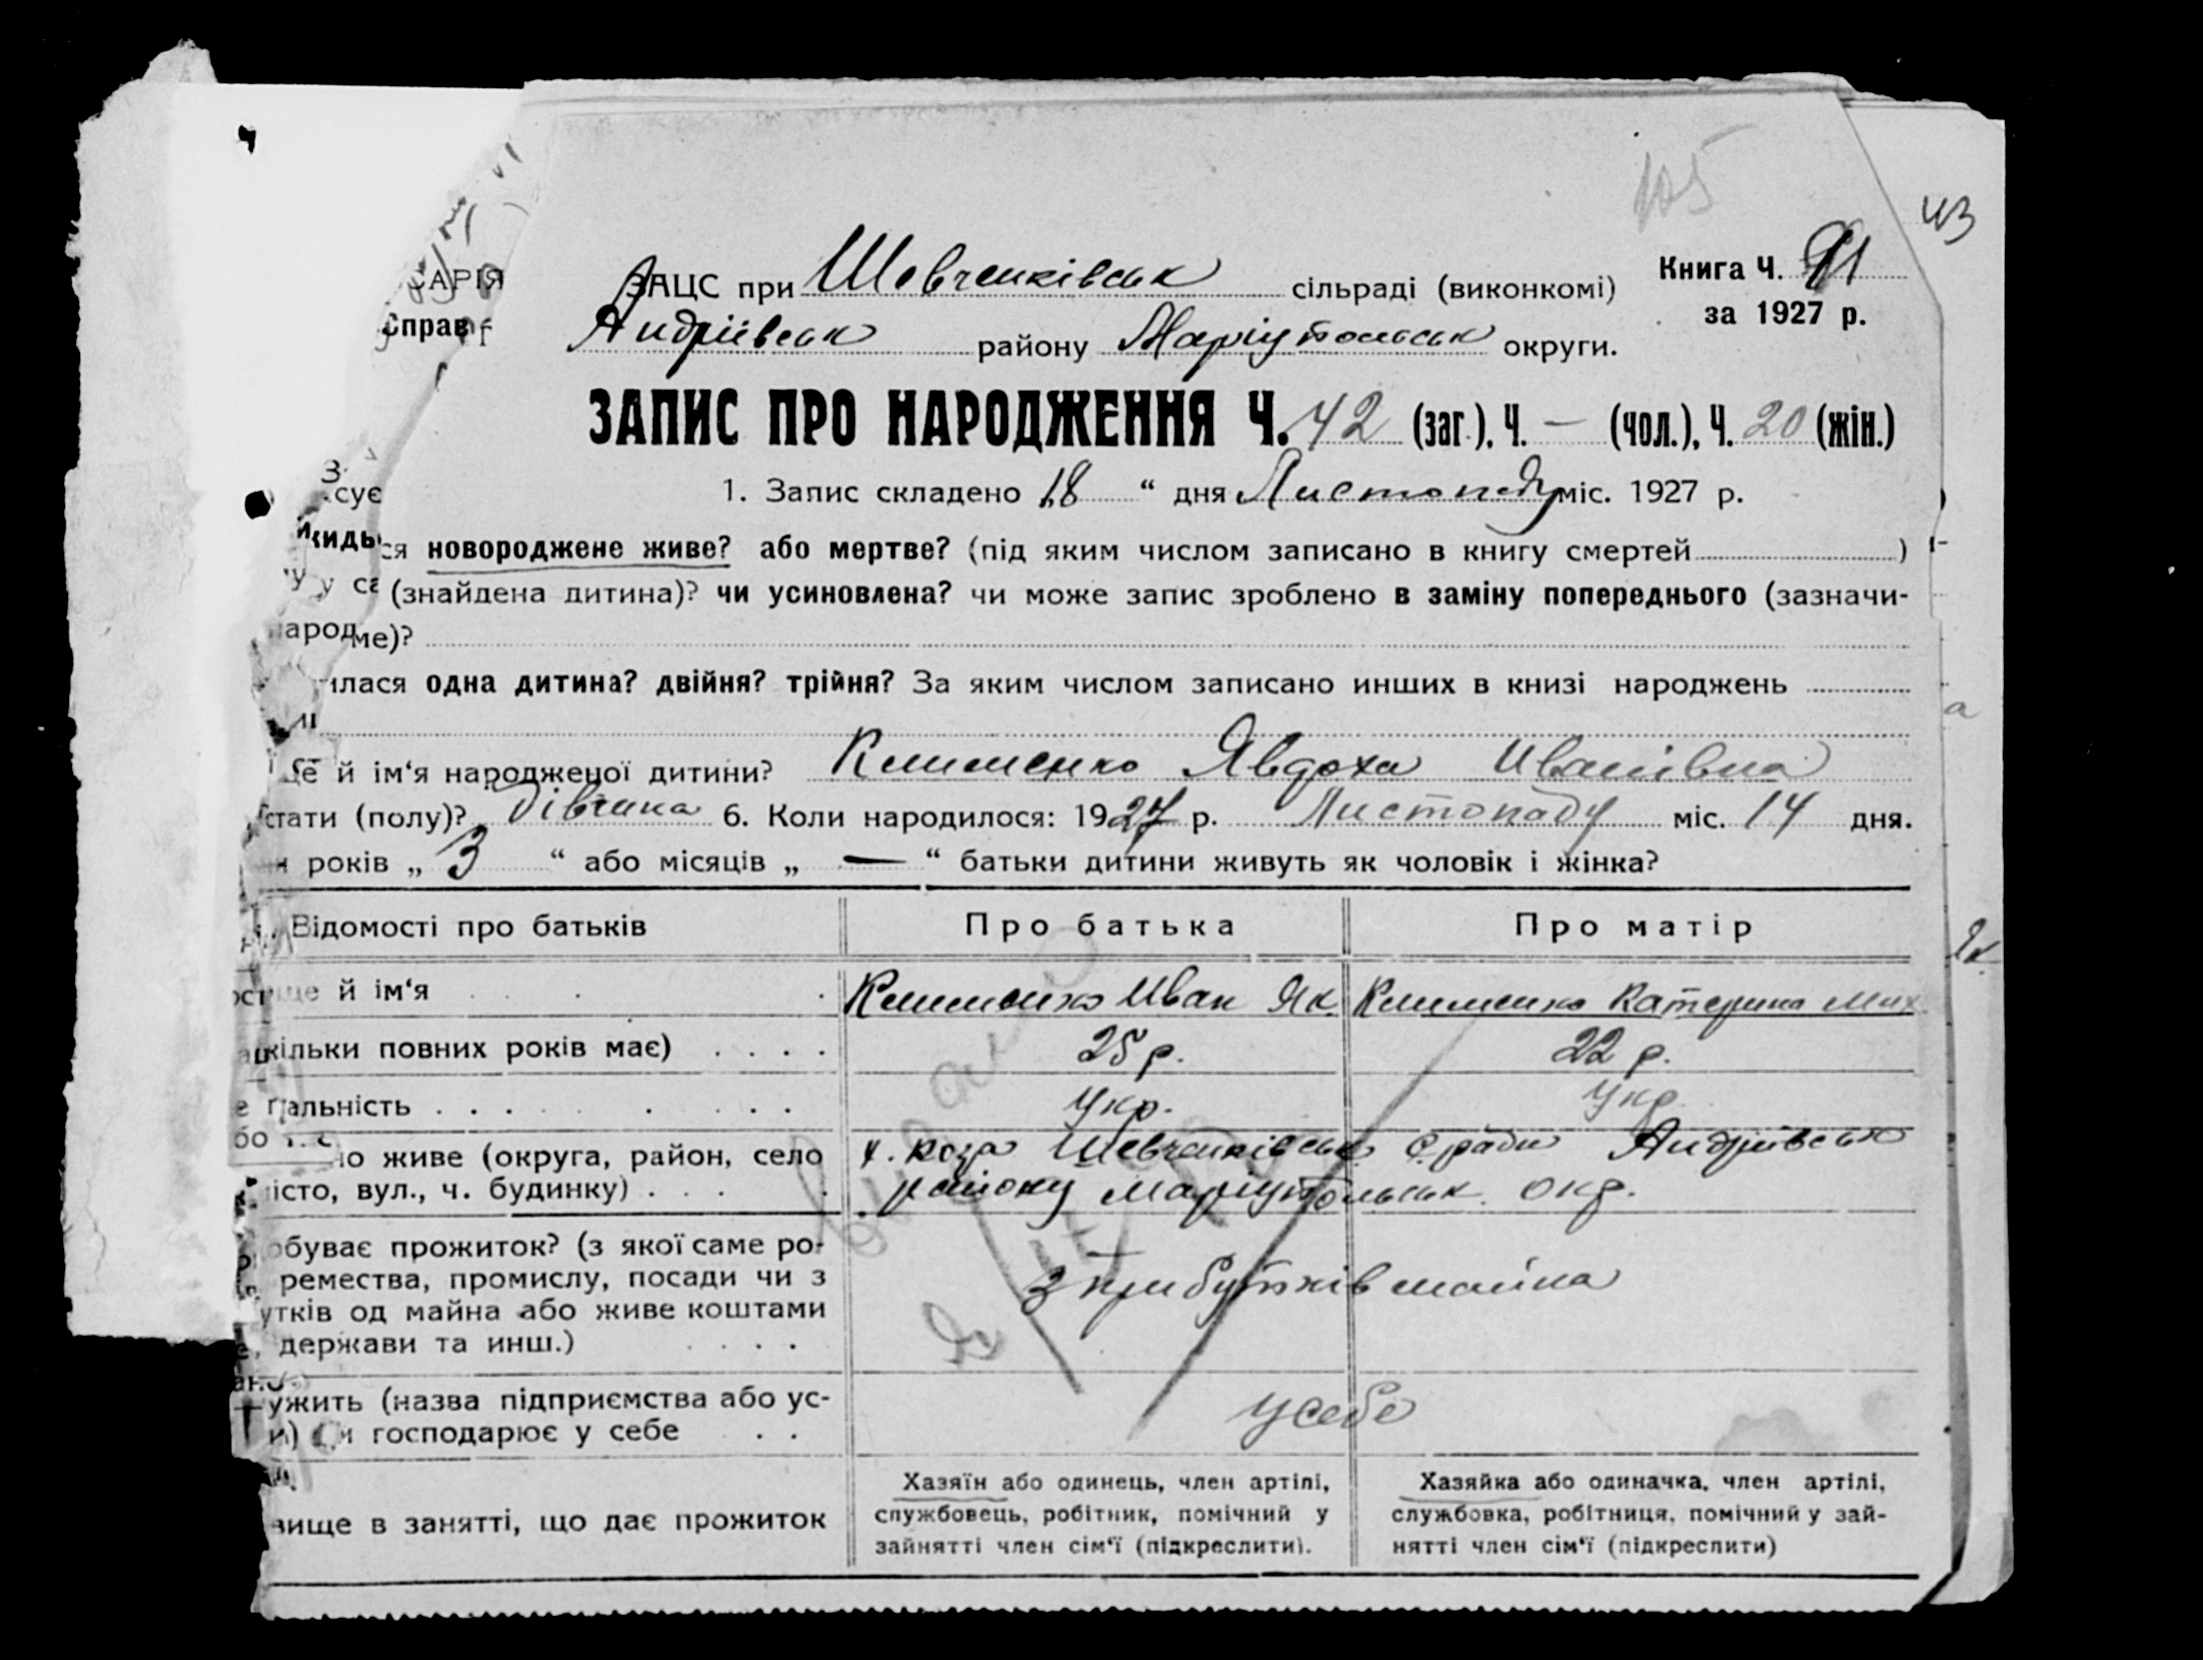 105
43
САРІЯ ЗАЦС при Шевченківськ сільраді (виконкомі) Книга Ч.
Справ Андріївськ району Маріупольськ округи. за 1927 р.
ЗАПИС ПРО НАРОДЖЕННЯ Ч. 42 (заг.), Ч. — (чол.), Ч. 20 (жін.)
сує 1. Запис складено 18 “ дня Листопаду міс. 1927 р.
ся новороджене живе? або мертве? (під яким числом записано в книгу смертей )
(знайдена дитина)? чи усиновлена? чи може запис зроблено в заміну попереднього (зазначи-
ме)?
илася одна дитина? двійня? трійня? За яким числом записано инших в книзі народжень
ще й ім‘я народженої дитини? Клименко Явдоха Иванівна
стати (полу)? дівчина 6. Коли народилося: 1927 р. Листопаду міс. 14 дня.
років „ 3 “ або місяців „ — “ батьки дитини живуть як чоловік і жінка?
Відомості про батьків Про батька Про матір
ще й ім‘я Клименко Иван Як Клименко Катерина Мих
кільки повних років має) 25 р. 22 р.
нальність Укр. Укр
но живе (округа, район, село х. Роза Шевченківськ. с.ради Андріївськ
істо, вул., ч. будинку) району Маріупольськ. окр.
обуває прожиток? (з якої саме ро-
ремества, промислу, посади чи з з прибутків майна
утків од майна або живе коштами
держави та инш.)
ужить (назва підприємства або ус- у себе
и) чи господарює у себе
вище в занятті, що дає прожиток
Хазяїн або одинець, член артілі,
службовець, робітник, помічний у
зайнятті член сім‘ї (підкреслити).
Хазяйка або одиначка, член артілі,
службовка, робітниця, помічний у зай-
нятті член сім‘ї (підкреслити)